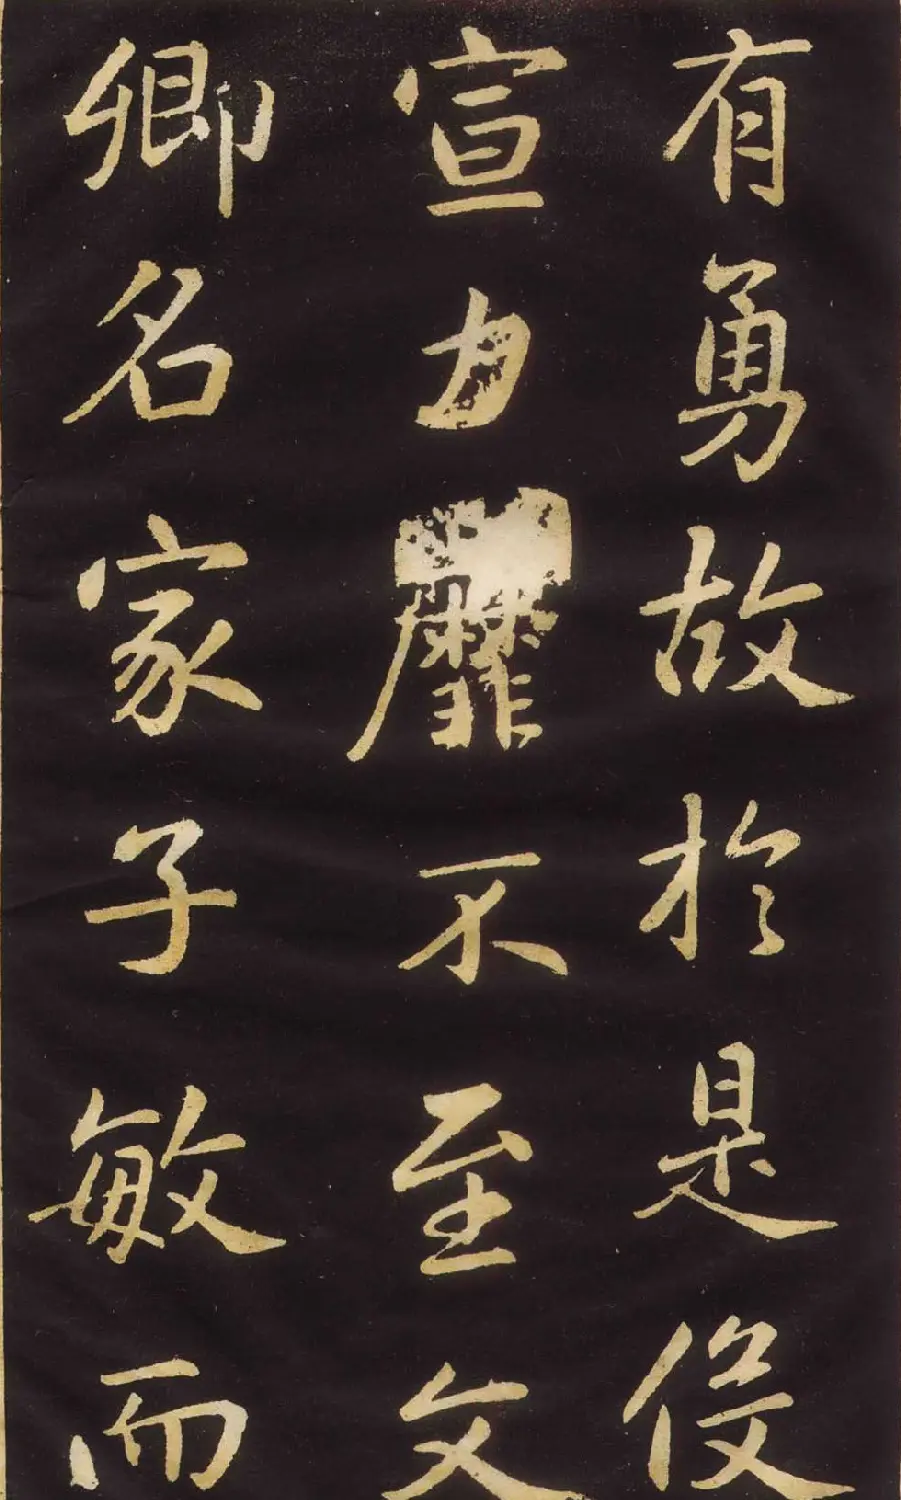 有勇故於是役
宣力靡不至文
卿名家子敏而